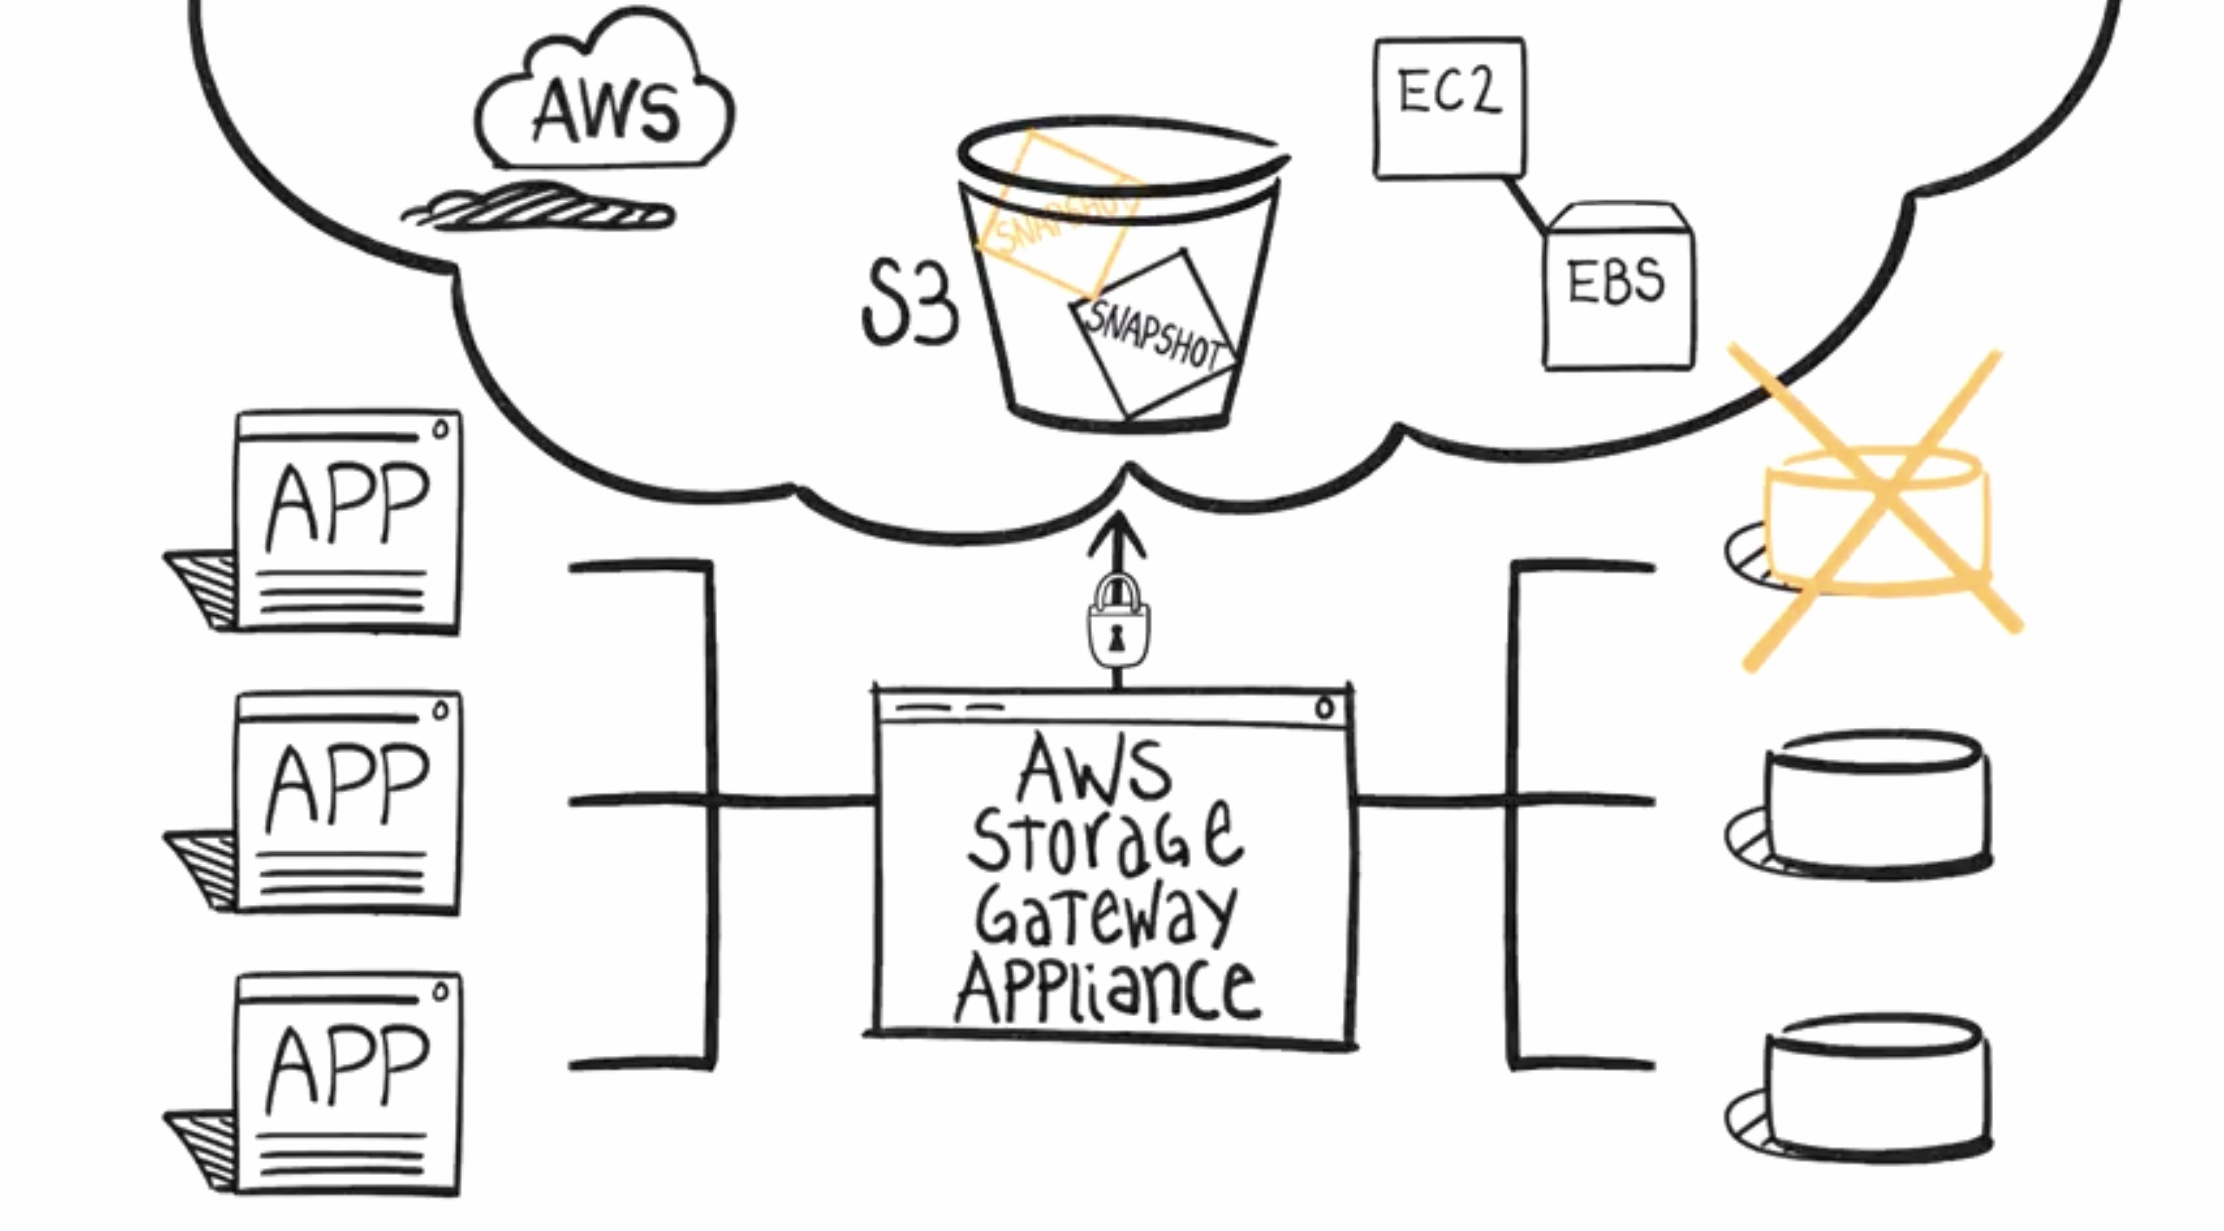 AWS
EC2
SNAPSHOT
S3
EBS
SNAPSHOT
APP
APP
APP
AWS
Storage
Gateway
Appliance